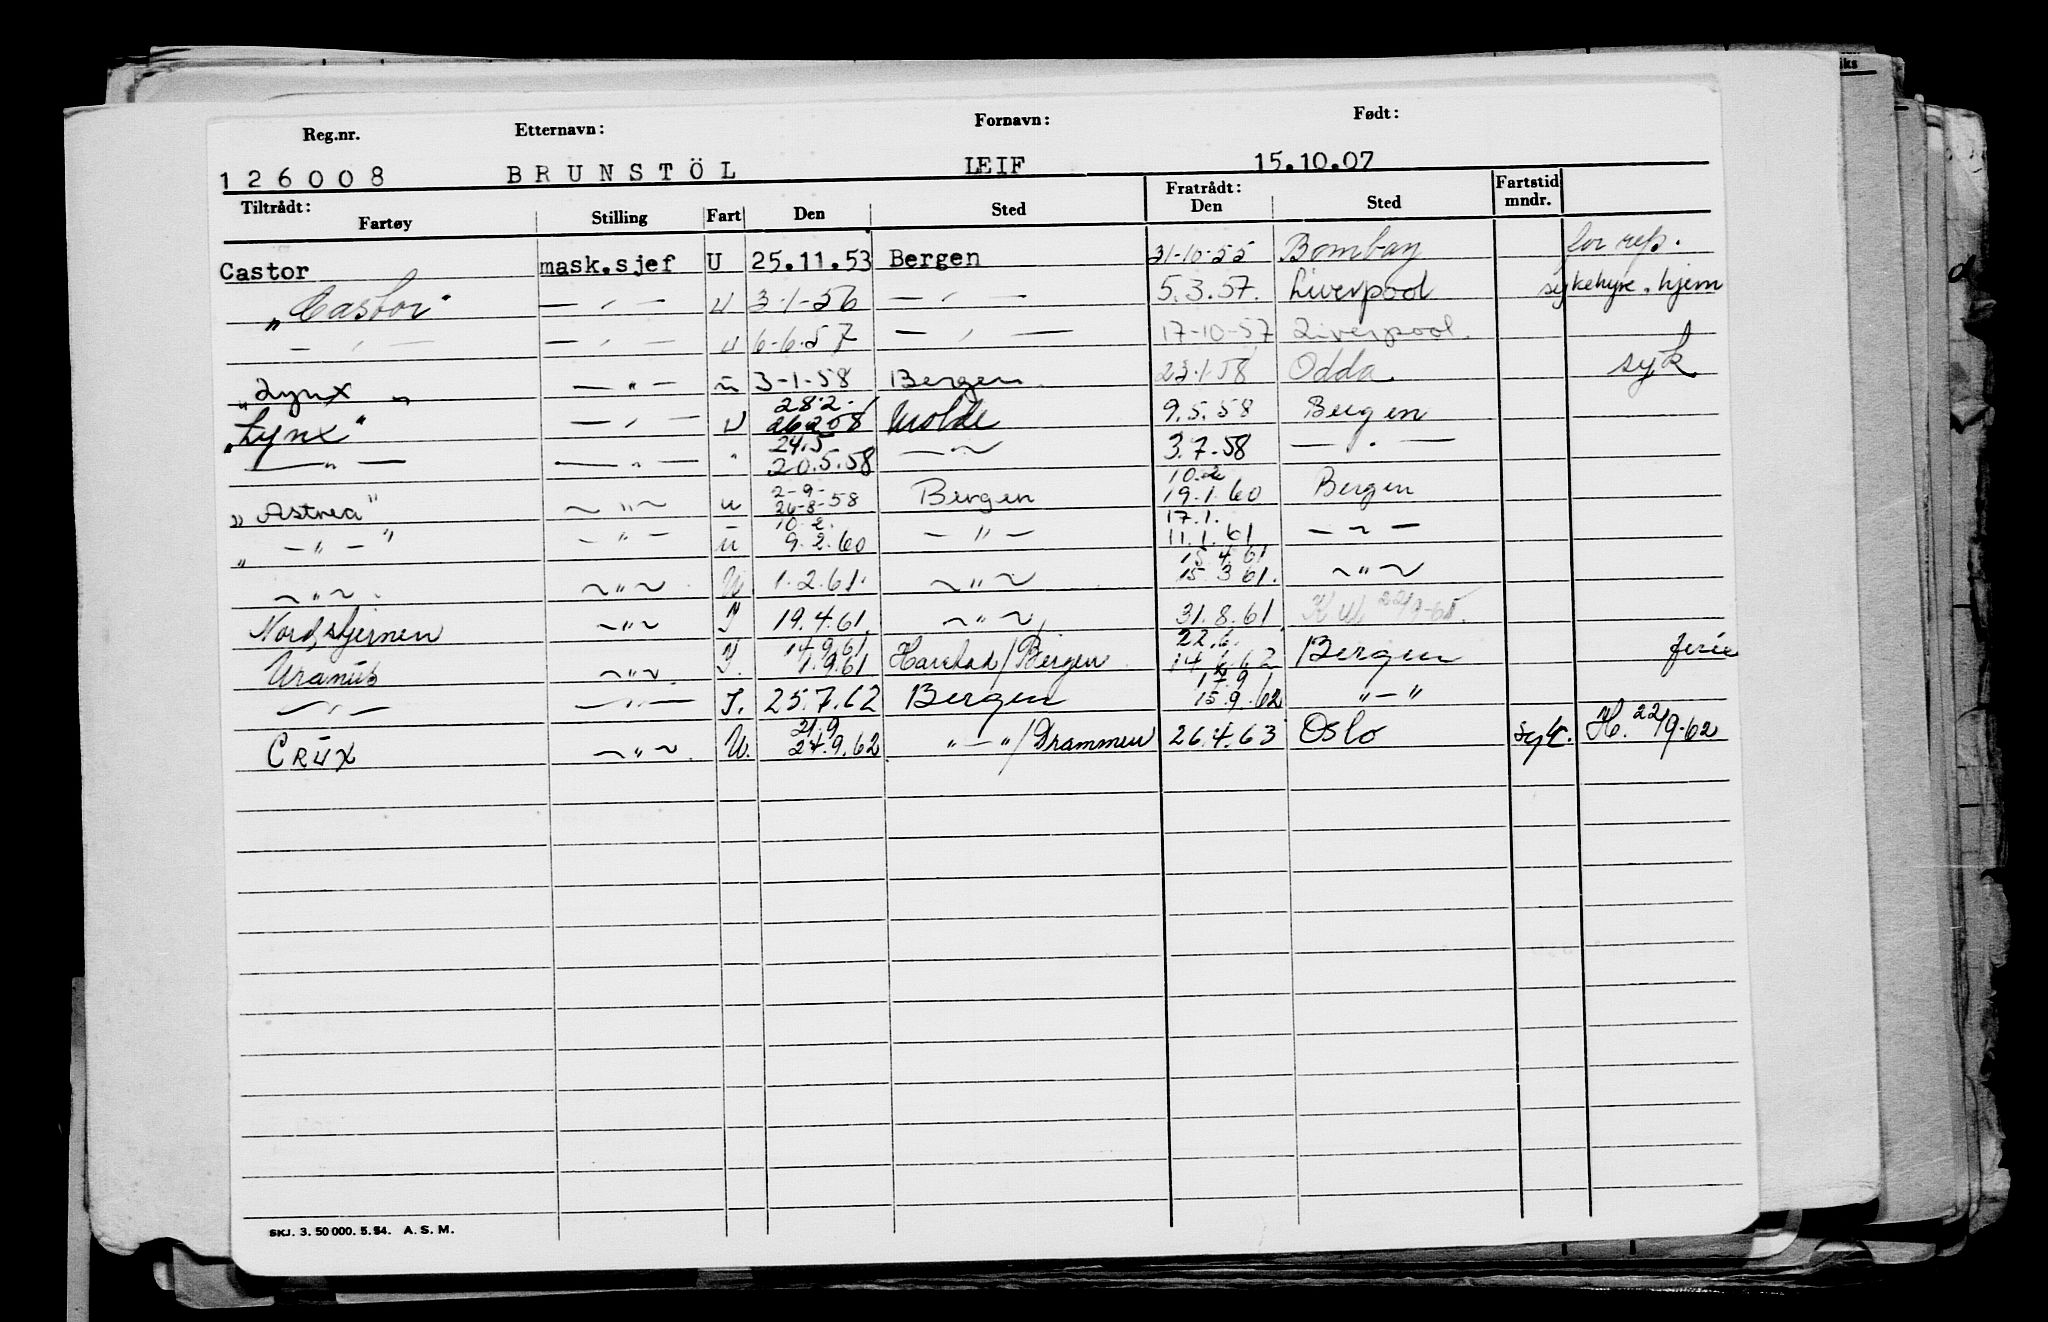 iks
Reg.nr. Etternavn: Fornavn: Født:
126008 BRUNSTÖL LEIF 15.10.07
Tiltrådt: Fratrådt: Fartstid
Fartøy Stilling Fart Den Sted Den Sted mndr.
Castor mask.sjef U 25.11.53 Bergen 31-10-55 Bombay for rep.
"Castor" — " — U 3-1-56 — " — 5.3.57. Liverpool sykehyre, hjem
— " — — " — U 6-6-57 — " — 17-10-57 Liverpool.
"Lynx" — " — u 3-1-58 Bergen 23-1-58 Odda syk
28.2.
"Lynx" — " — U 26.2.58 Molde 9.5.58 Bergen
24.5
— " — — " — " 20.5.58 — " — 3.7.58 — " —
2-9- 10.2
"Astrea" — " — u 26-8-58 Bergen 19.1.60 Bergen
10.2. 17.1.
" — " — " — " — u 9.2.60 — " — 11.1.61 — " —
15.4.61
— " — — " — U 1.2.61. — " — 15.3.61. — " —
Nordstjernen — " — I 19.4.61. — " — 31.8.61 22/9-61.
14.9.61 22.6.
Uranus — " — I. 1.9.61 Harstad/Bergen 14.6.62 Bergen ferie
17.9
— " — — " — I. 25.7.62 Bergen 15.9.62 " — "
21/9
CRUX — " — U. 24.9.62 " — "/Drammen 26.4.63 Oslo syk. H. 22/9-62
SKJ. 3. 50 000. 5.54. A. S. M.